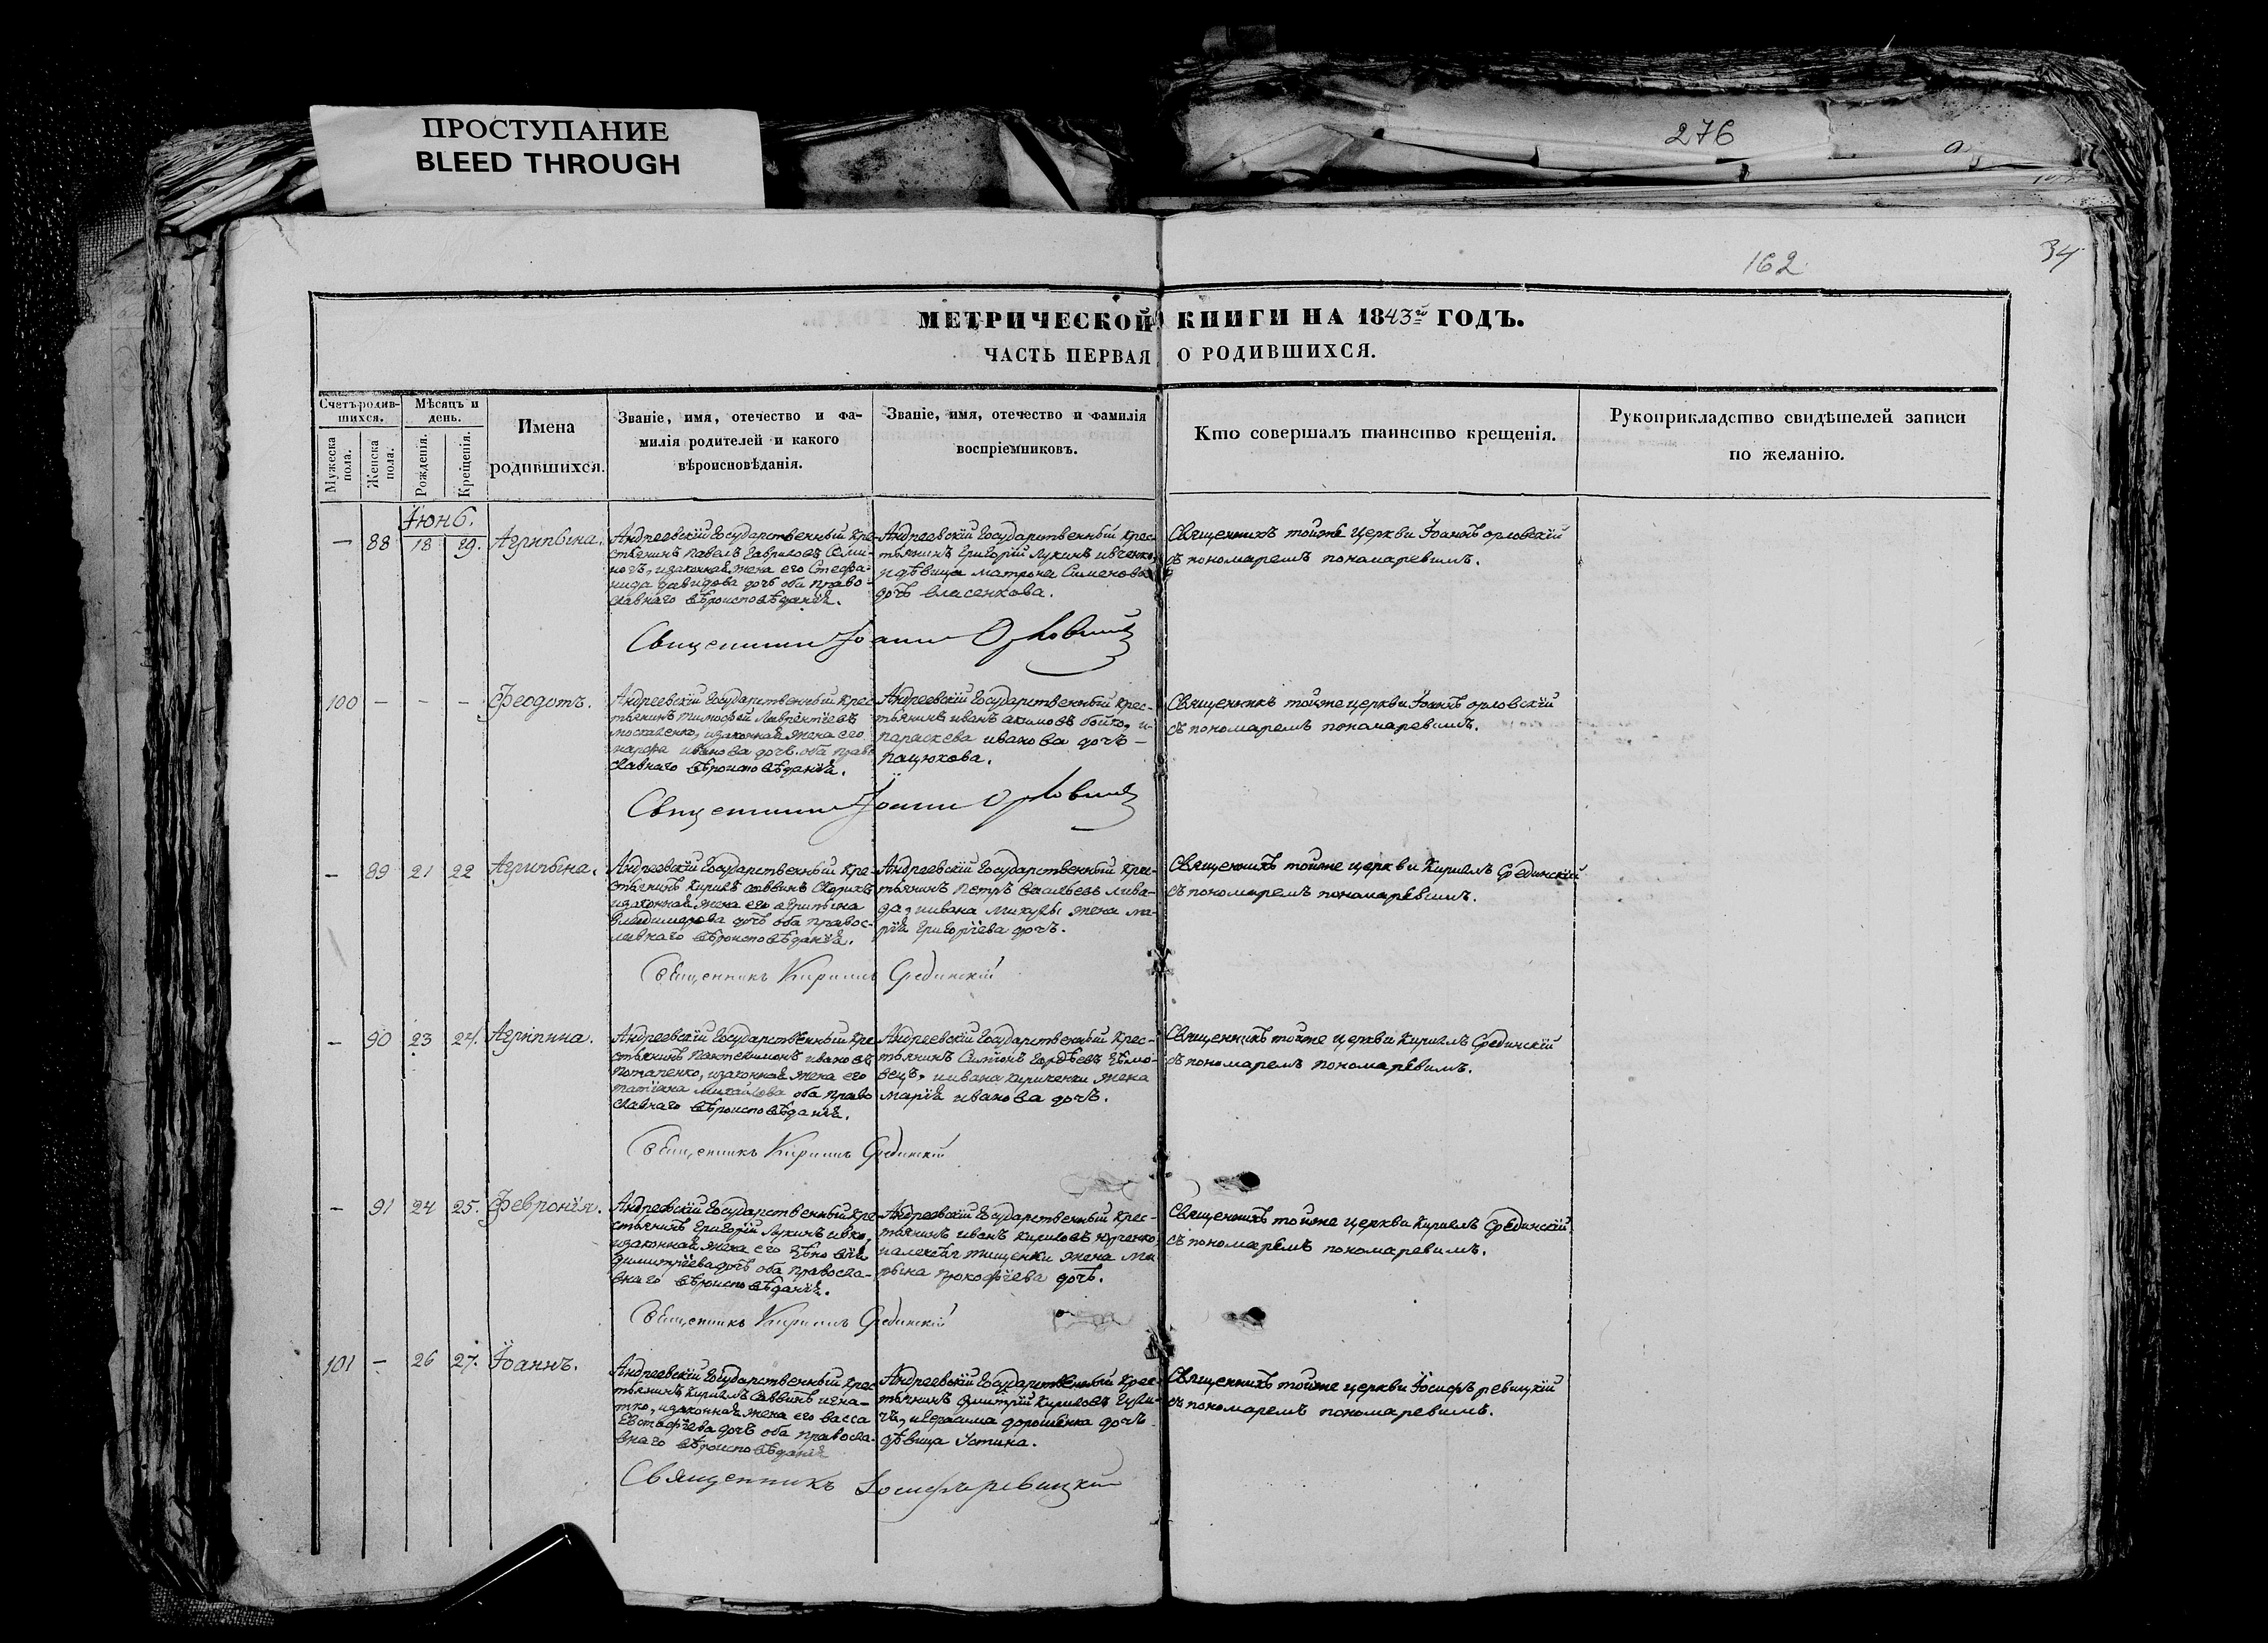 ПРОСТУПАНИЕ
BLEED THROUGH
276
162
34
МЕТРИЧЕСКОЙ КНИГИ НА 1843й ГОДЪ.
ЧАСТЬ ПЕРВАЯ О РОДИВШИХСЯ.
Счетъ родив-
шихся.
Мужеска
пола.
Женска
пола.
Мѣсяцъ и
день.
Рожденія.
Крещенія.
Имена
родившихся.
Званіе, имя, отечество и фа-
милія родителей и какого
вѣроисповѣданія.
Званіе, имя, отечество и фамилія
воспріемниковъ.
Кто совершалъ таинство крещенія.
Рукоприкладство свидѣтелей записи
по желанію.
Іюнь.
— 88 18 19. Агрипына.
Андреевскій Государственный Кре-
стьянинъ Павелъ Гавриловъ
изаконная жена его Стефа-
нида давидова дочь оба право-
славнаго вѣроисповѣданія.
Андреевскій Государственный Крес-
тьянинъ Григорій Лукинъ ивченко,
идѣвица матрона Сименова
дочь власенкова.
Священникъ тойже Церкви Іоаннъ орловскій
съ пономаремъ пономаревимъ.
Священникъ Іоаннъ Орловскій
100 — — — Феодотъ.
Андреевскій Государственный Крес-
тьянинъ тимофей Лаврентіевъ
москаленко, изаконная жена его
марфа иванова дочь оба право
славнаго вѣроисповѣданія.
Андреевскій Государственный Крес-
тьянинъ иванъ акимовъ бойко, и
параскева иванова дочь —
пацюкова.
Священникъ тойже церкви Іоаннъ орловскій
съ пономаремъ пономаревимъ.
Священникъ Іоаннъ Орловскій
— 89 21 22 Агрипына.
Андреевскій Государственный Кре-
стьянинъ Кирилъ саввинъ
изаконная жена его агрипына
Владимерова дочь оба правос-
лавнаго вѣроисповѣданія.
Андреевскій Государственный Крес-
тьянинъ Петръ васильевъ лива-
да, иивана микулы жена ма-
рія Григоріева дочь.
Священникъ тойже церкви Кириллъ Срединскій
съ пономаремъ пономаревимъ.
Священникъ Кириллъ Срединскій
— 90 23 24. Агрипина.
Андреевскій Государственный Кре-
стьянинъ Пантелимонъ ивановъ
Потапенко, изаконная жена его
татіяна михайлова оба право
славнаго вѣроисповѣданія.
Андреевскій Государственный Крес-
тьянинъ Симіонъ Гордѣевъ
иивана Кириченки жена
марія иванова дочь.
Священникъ тойже церкви Кириллъ Срединскій
съ пономаремъ пономаревимъ.
Священникъ Кириллъ Срединскій
— 91 24 25. Февронія.
Андреевскій Государственный Кре-
стьянинъ Григорій Лукинъ
изаконная жена его Зѣновія
димитріева дочь оба правосла-
внаго вѣроисповѣданія.
Андреевскій Государственный Крес-
тьянинъ иванъ Кириловъ Юрченко,
иалексѣя тищенки жена Ма
рына прокофіева дочь.
Священникъ тойже церкви Кириллъ Срединскій
съ пономаремъ пономаревимъ.
Священникъ Кириллъ Срединскій
101 — 26 27. Іоаннъ.
Андреевскій Государственный Крес
тьянинъ Кириллъ Саввинъ игна-
тко, изаконная жена его васса
Евстафіева дочь оба правосла-
внаго вѣроисповѣданія
Андреевскій Государственный Крес-
тьянинъ димитрій Кириловъ
иГерасима дорошенка дочь
дѣвица Устина.
Священникъ тойже церкви Іосифъ ревицкій
съ пономаремъ пономаревимъ.
Священникъ Іосифъ ревицкій